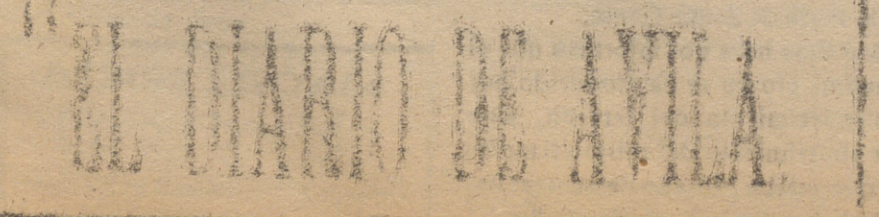 EL DIARIO DE AVILA